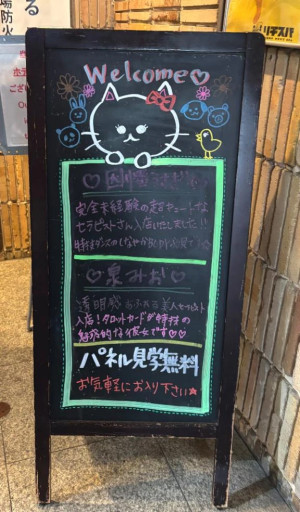 る
場防火
Welcome♡
完全未経験の超キュートな
セラピストさん入店いたしました!!
特技ダンスのしなやか
♡泉みお♡
透明感あふれる美人セラピスト
入店!タロットカードが特技の
魅惑的な彼女です♡♡
パネル見学無料
お気軽にお入り下さい★